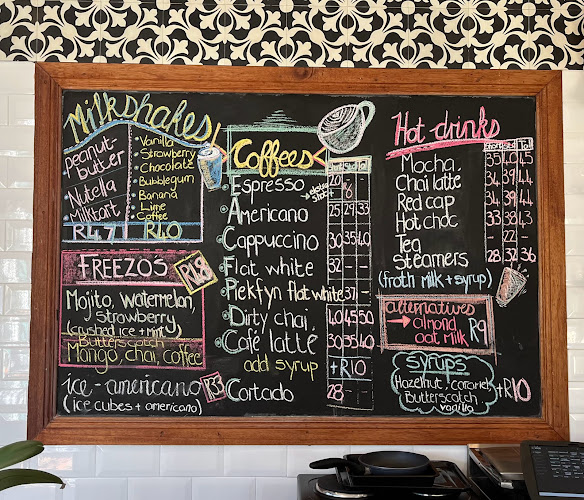 Milkshakes!
peanut-
butter
Nutella
Milktart
R47
Vanilla
Strawberry
Chocolate
Bubblegum
Banana
Lime
Coffee
R40
FREEZO'S
Mojito, Watermelon,
Strawberry
(crushed ice + mint)
Butterscotch
Mango, chai, coffee
ice-americano R33
(ice cubes + americano)
Coffees
Short Std Tall
Espresso 20
Americano 25 29 33
Cappuccino 30 35 40
Flat white 32 - -
Piekfyn flat white 37 - -
Dirty chai 40 45 50
Café latté 30 35 40
add syrup +R10
Cortado 28
Hot drinks
Short Std Tall
Mocha 35 40 45
Chai latte 34 39 44
Red cap 34 39 44
Hot choc 33 38 43
Tea - 22 -
Steamers 28 32 36
(froth milk + syrup)
alternatives
→ almond R9
oat Milk
syrups
Hazelnut, caramel +R10
Butterscotch
vanilla